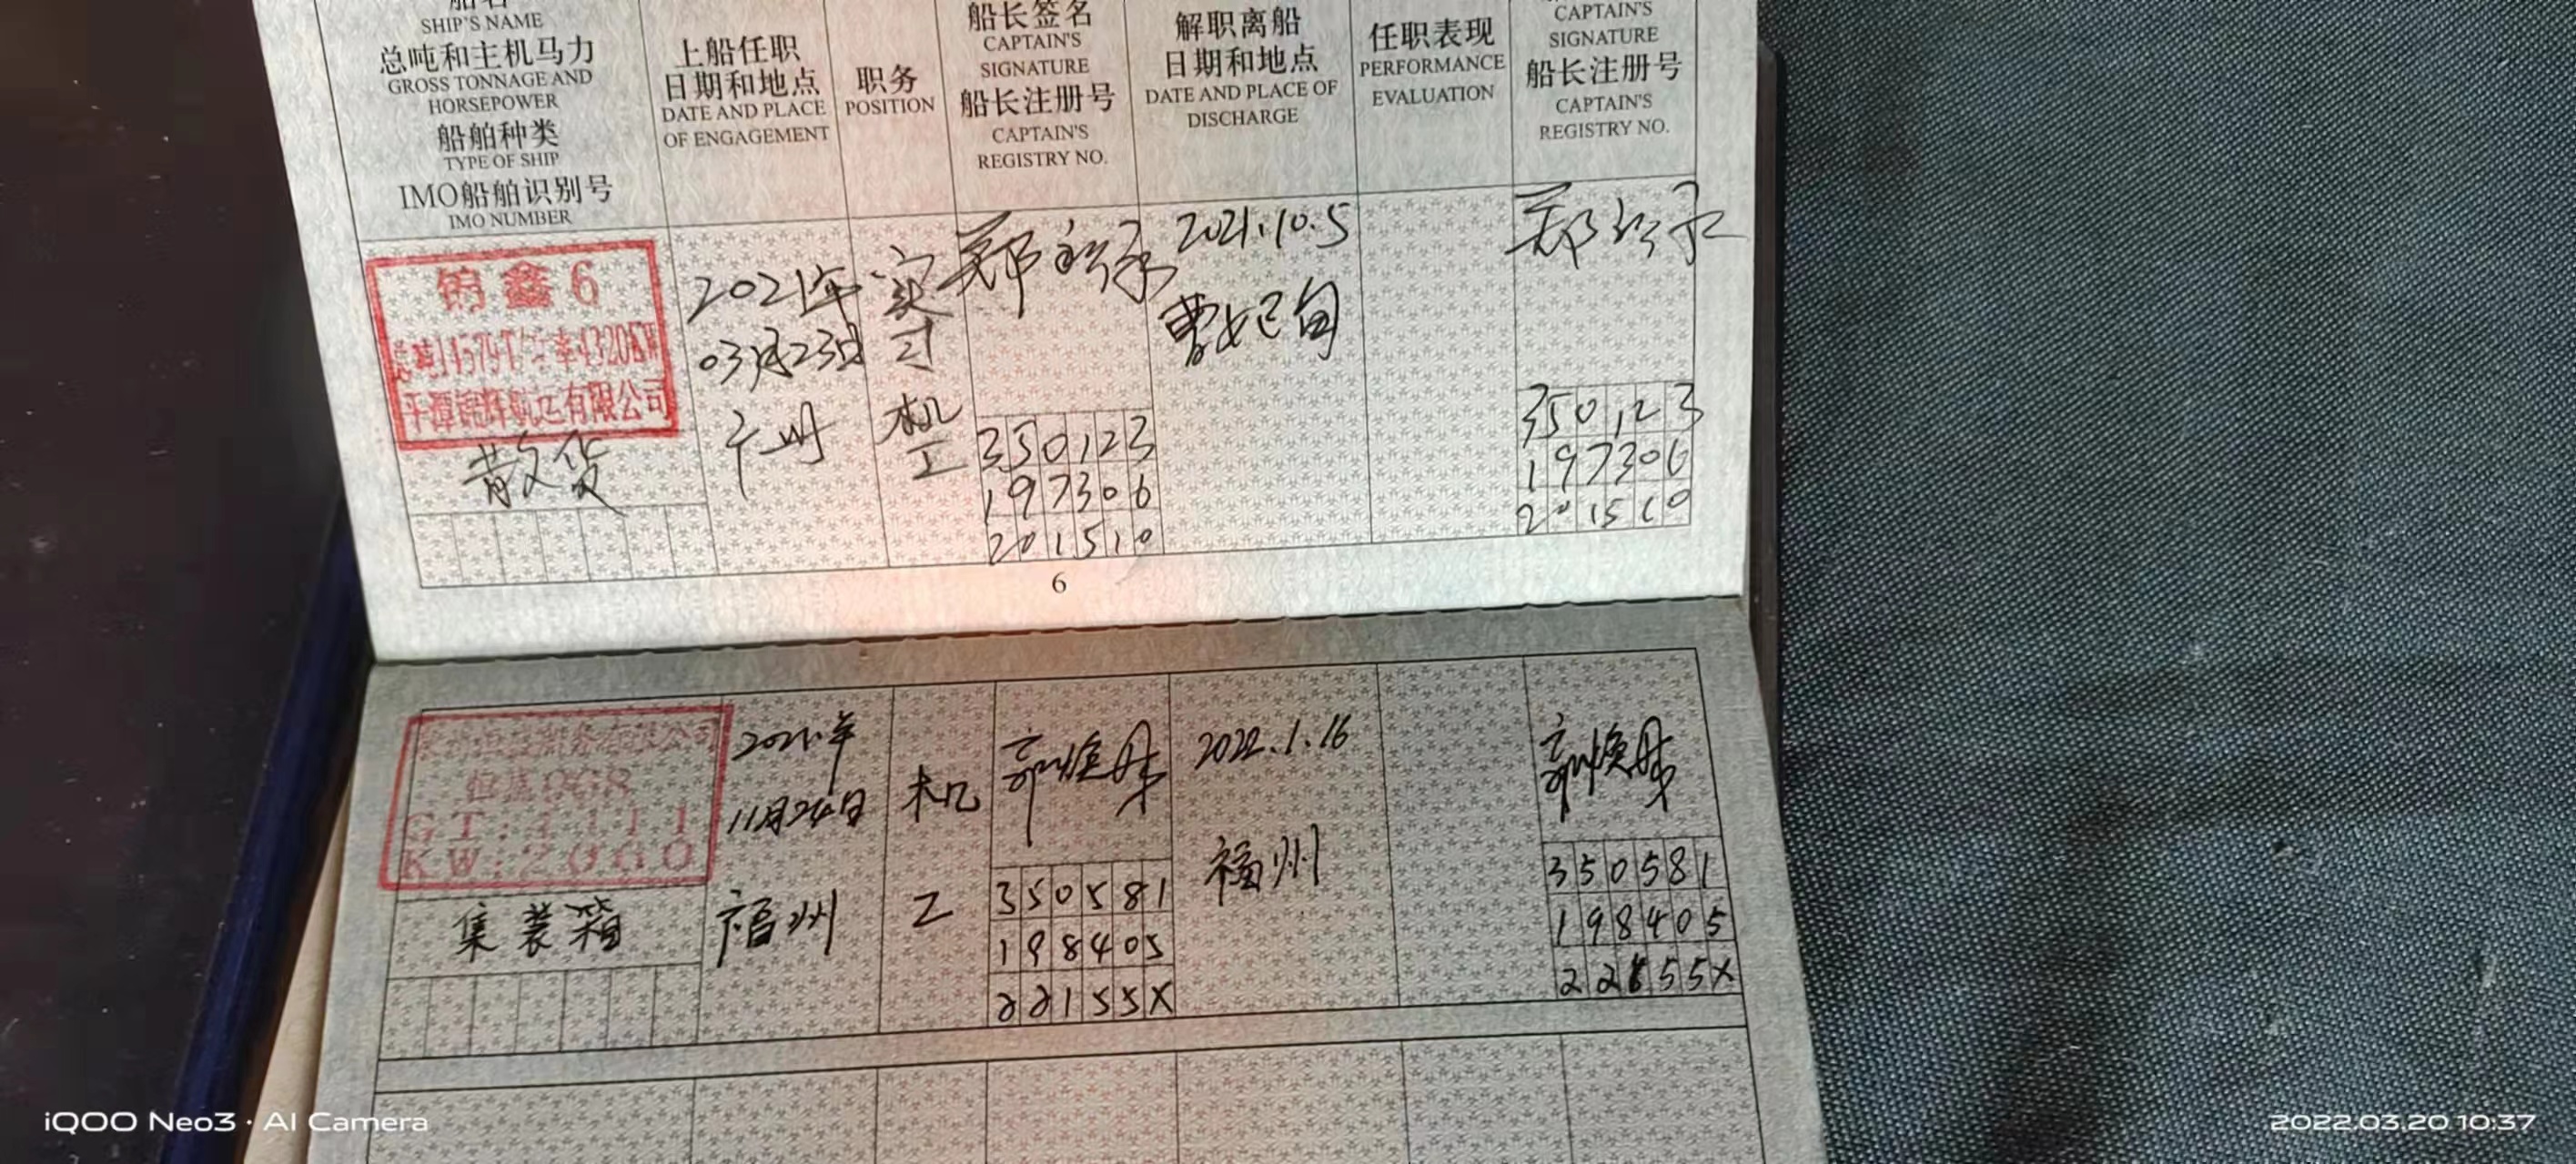 船名
SHIP'S NAME
总吨和主机马力
GROSS TONNAGE AND
HORSEPOWER
船舶种类
TYPE OF SHIP
IMO船舶识别号
IMO NUMBER
上船任职
日期和地点
DATE AND PLACE
OF ENGAGEMENT
职务
POSITION
船长签名
CAPTAIN'S
SIGNATURE
船长注册号
CAPTAIN'S
REGISTRY NO.
解职离船
日期和地点
DATE AND PLACE OF
DISCHARGE
任职表现
PERFORMANCE
EVALUATION
CAPTAIN'S
SIGNATURE
船长注册号
CAPTAIN'S
REGISTRY NO.
锦鑫6
平潭锦辉航运有限公司
散货
2021年
03月23日
实
习
机
工
郑
350123
197306
201510
2021.10.5
曹妃甸
郑
350123
197306
201510
6
GT:
KW:2060
集装箱
2021年
11月24日
福州
机
工
350581
198405
22155X
2022.1.16
福州
350581
198405
22155X
iQOO Neo3 · AI Camera
2022.03.20 10:37